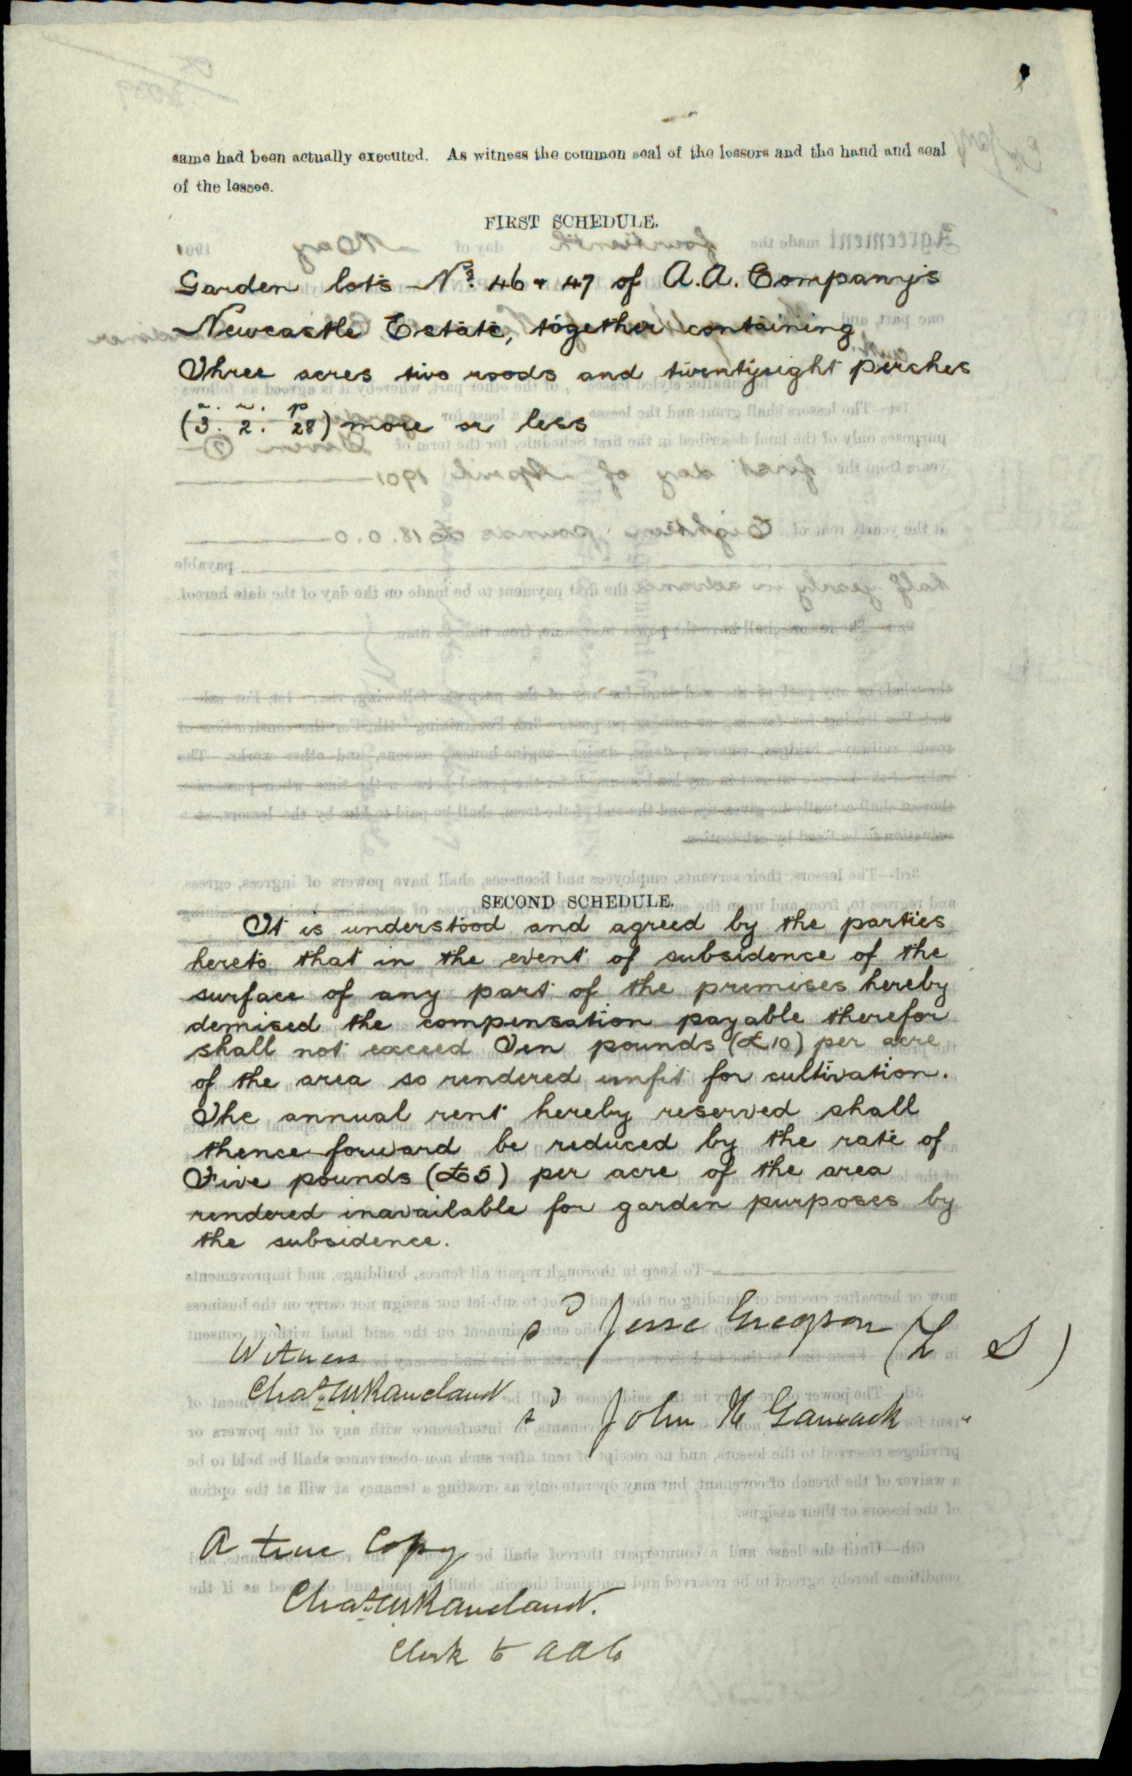 same had been actually executed. As witness the common seal of the lessors and the hand and seal
of the lessee.
FIRST SCHEDULE.
Garden lots Nos. 46 & 47 of A.A. Company's
Newcastle Estate, together containing
Three acres two roods and twentyeight perches
a. r. p
(3. 2. 28) more or less
SECOND SCHEDULE.
It is understood and agreed by the parties
hereto that in the event of subsidence of the
surface of any part of the premises hereby
demised the compensation payable therefor
shall not exceed Ten pounds (£10) per acre
of the area so rendered unfit for cultivation.
The annual rent hereby reserved shall
thence forward be reduced by the rate of
Five pounds (£5) per acre of the area
rendered inavailable for garden purposes by
the subsidence.
Jesse Gregson (L S)
Witness
Chas. W.
John
A true Copy
Chas. W.
Clerk to AACo